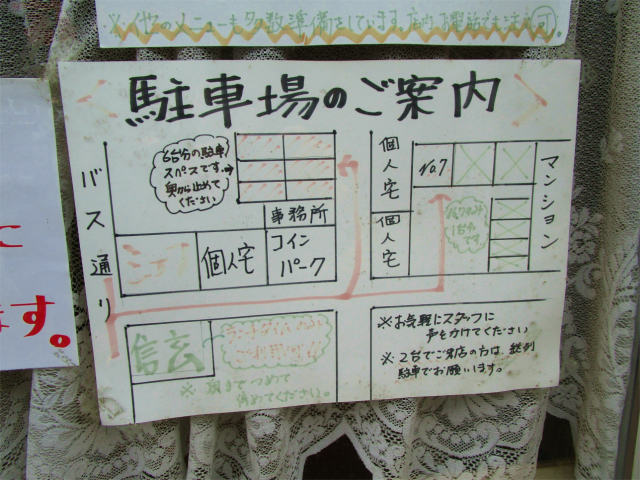 ※他のメニューも多数準備をしています。店内
駐車場のご案内
バス通り
6台分の駐車
スペスです。
奥から止めて
ください
事務所
個人宅
コイン
パーク
個人宅
個人宅
No.7
マンション
1台分
です。
信玄
※奥までつめて
停めてください。
※お気軽にスタッフに
声をかけてください
※2台でご来店の方は、縦列
駐車でお願います。
に
ます。